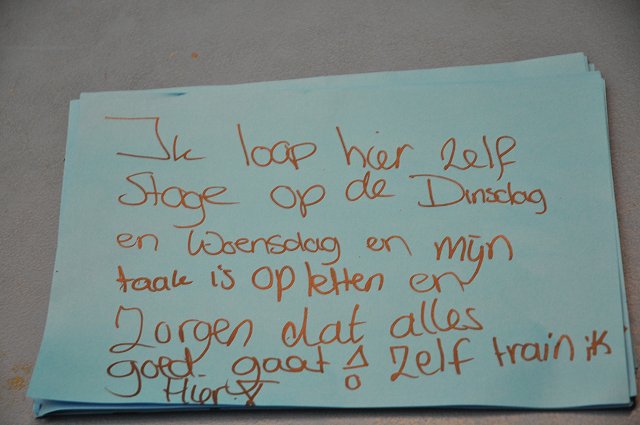 Ik loop hier zelf
Stage op de Dinsdag
en Woensdag en mijn
taak is opletten en
Zorgen dat alles
goed gaat ! Zelf train ik
Hier